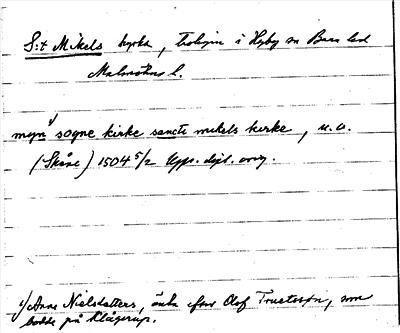 S:t Mikels kyrka, troligen i Hyby sn Bara hd
Malmöhus l.
myn¹⁾ sogne kirke sancte mikels kirke, u.o.
(Skåne) 1504 5/2 Upps. dipl. orig.
¹⁾ Anne Nielsdatters, änka efter Olof Truetssøn, som
bodde på Klågerup.